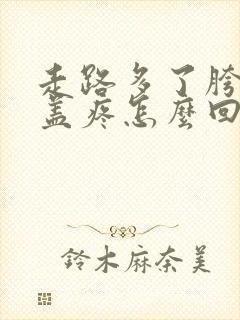 走路多了胯
盖疼怎麼回
鈴木麻奈美